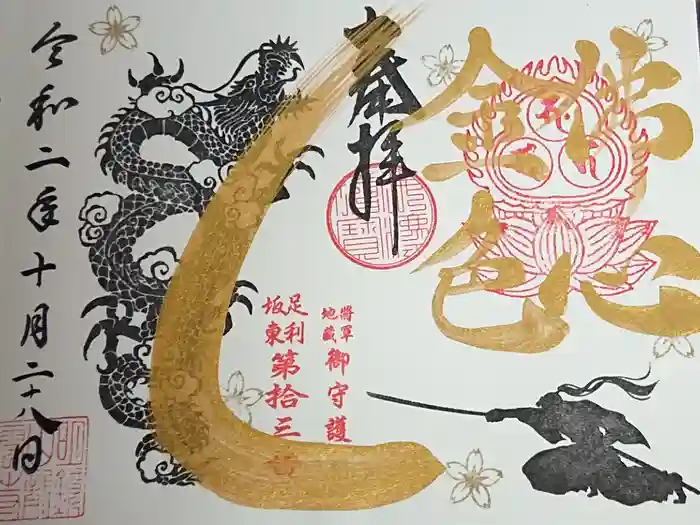 佛心
金色
奉拝
將軍
地蔵
御守護
足利
坂東
第拾三番
令和二年十月二十八日